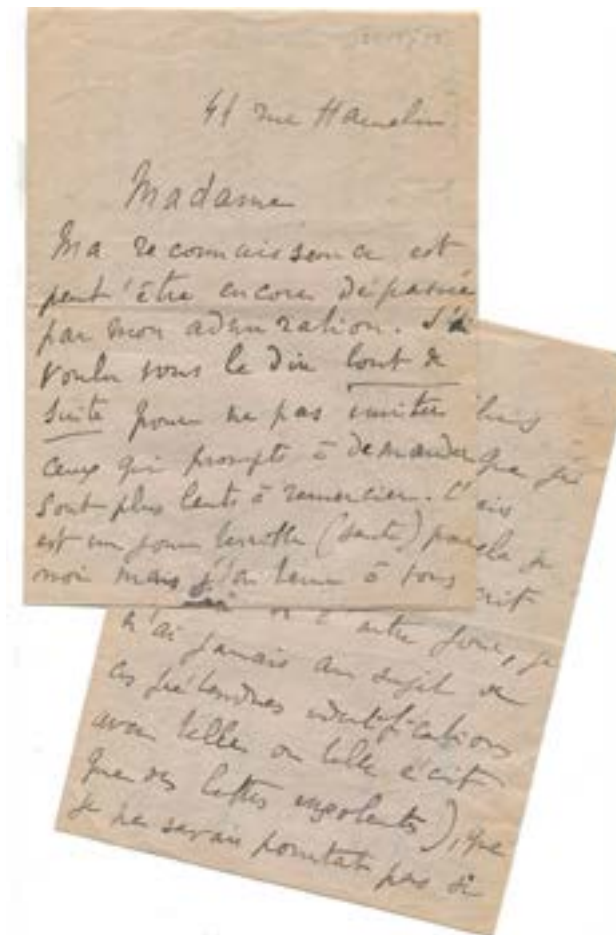 44 rue Hamelin
Madame
Ma reconnaissance est
peut'être encore dépassée
par mon admiration. J'ai
voulu vous le dire tout de
suite pour ne pas imiter
ceux qui prompts à demander
sont plus lents à remercier. C'
est un jour terrible (santé) pour
moi mais j'ai tenu à vous
plus
que j'ai
ais
la
crit
l'autre jour, je
n'ai jamais au sujet de
ces prétendues identifications
avec telles ou telle écrit
que des lettres insolentes), que
je ne savais pourtant pas si